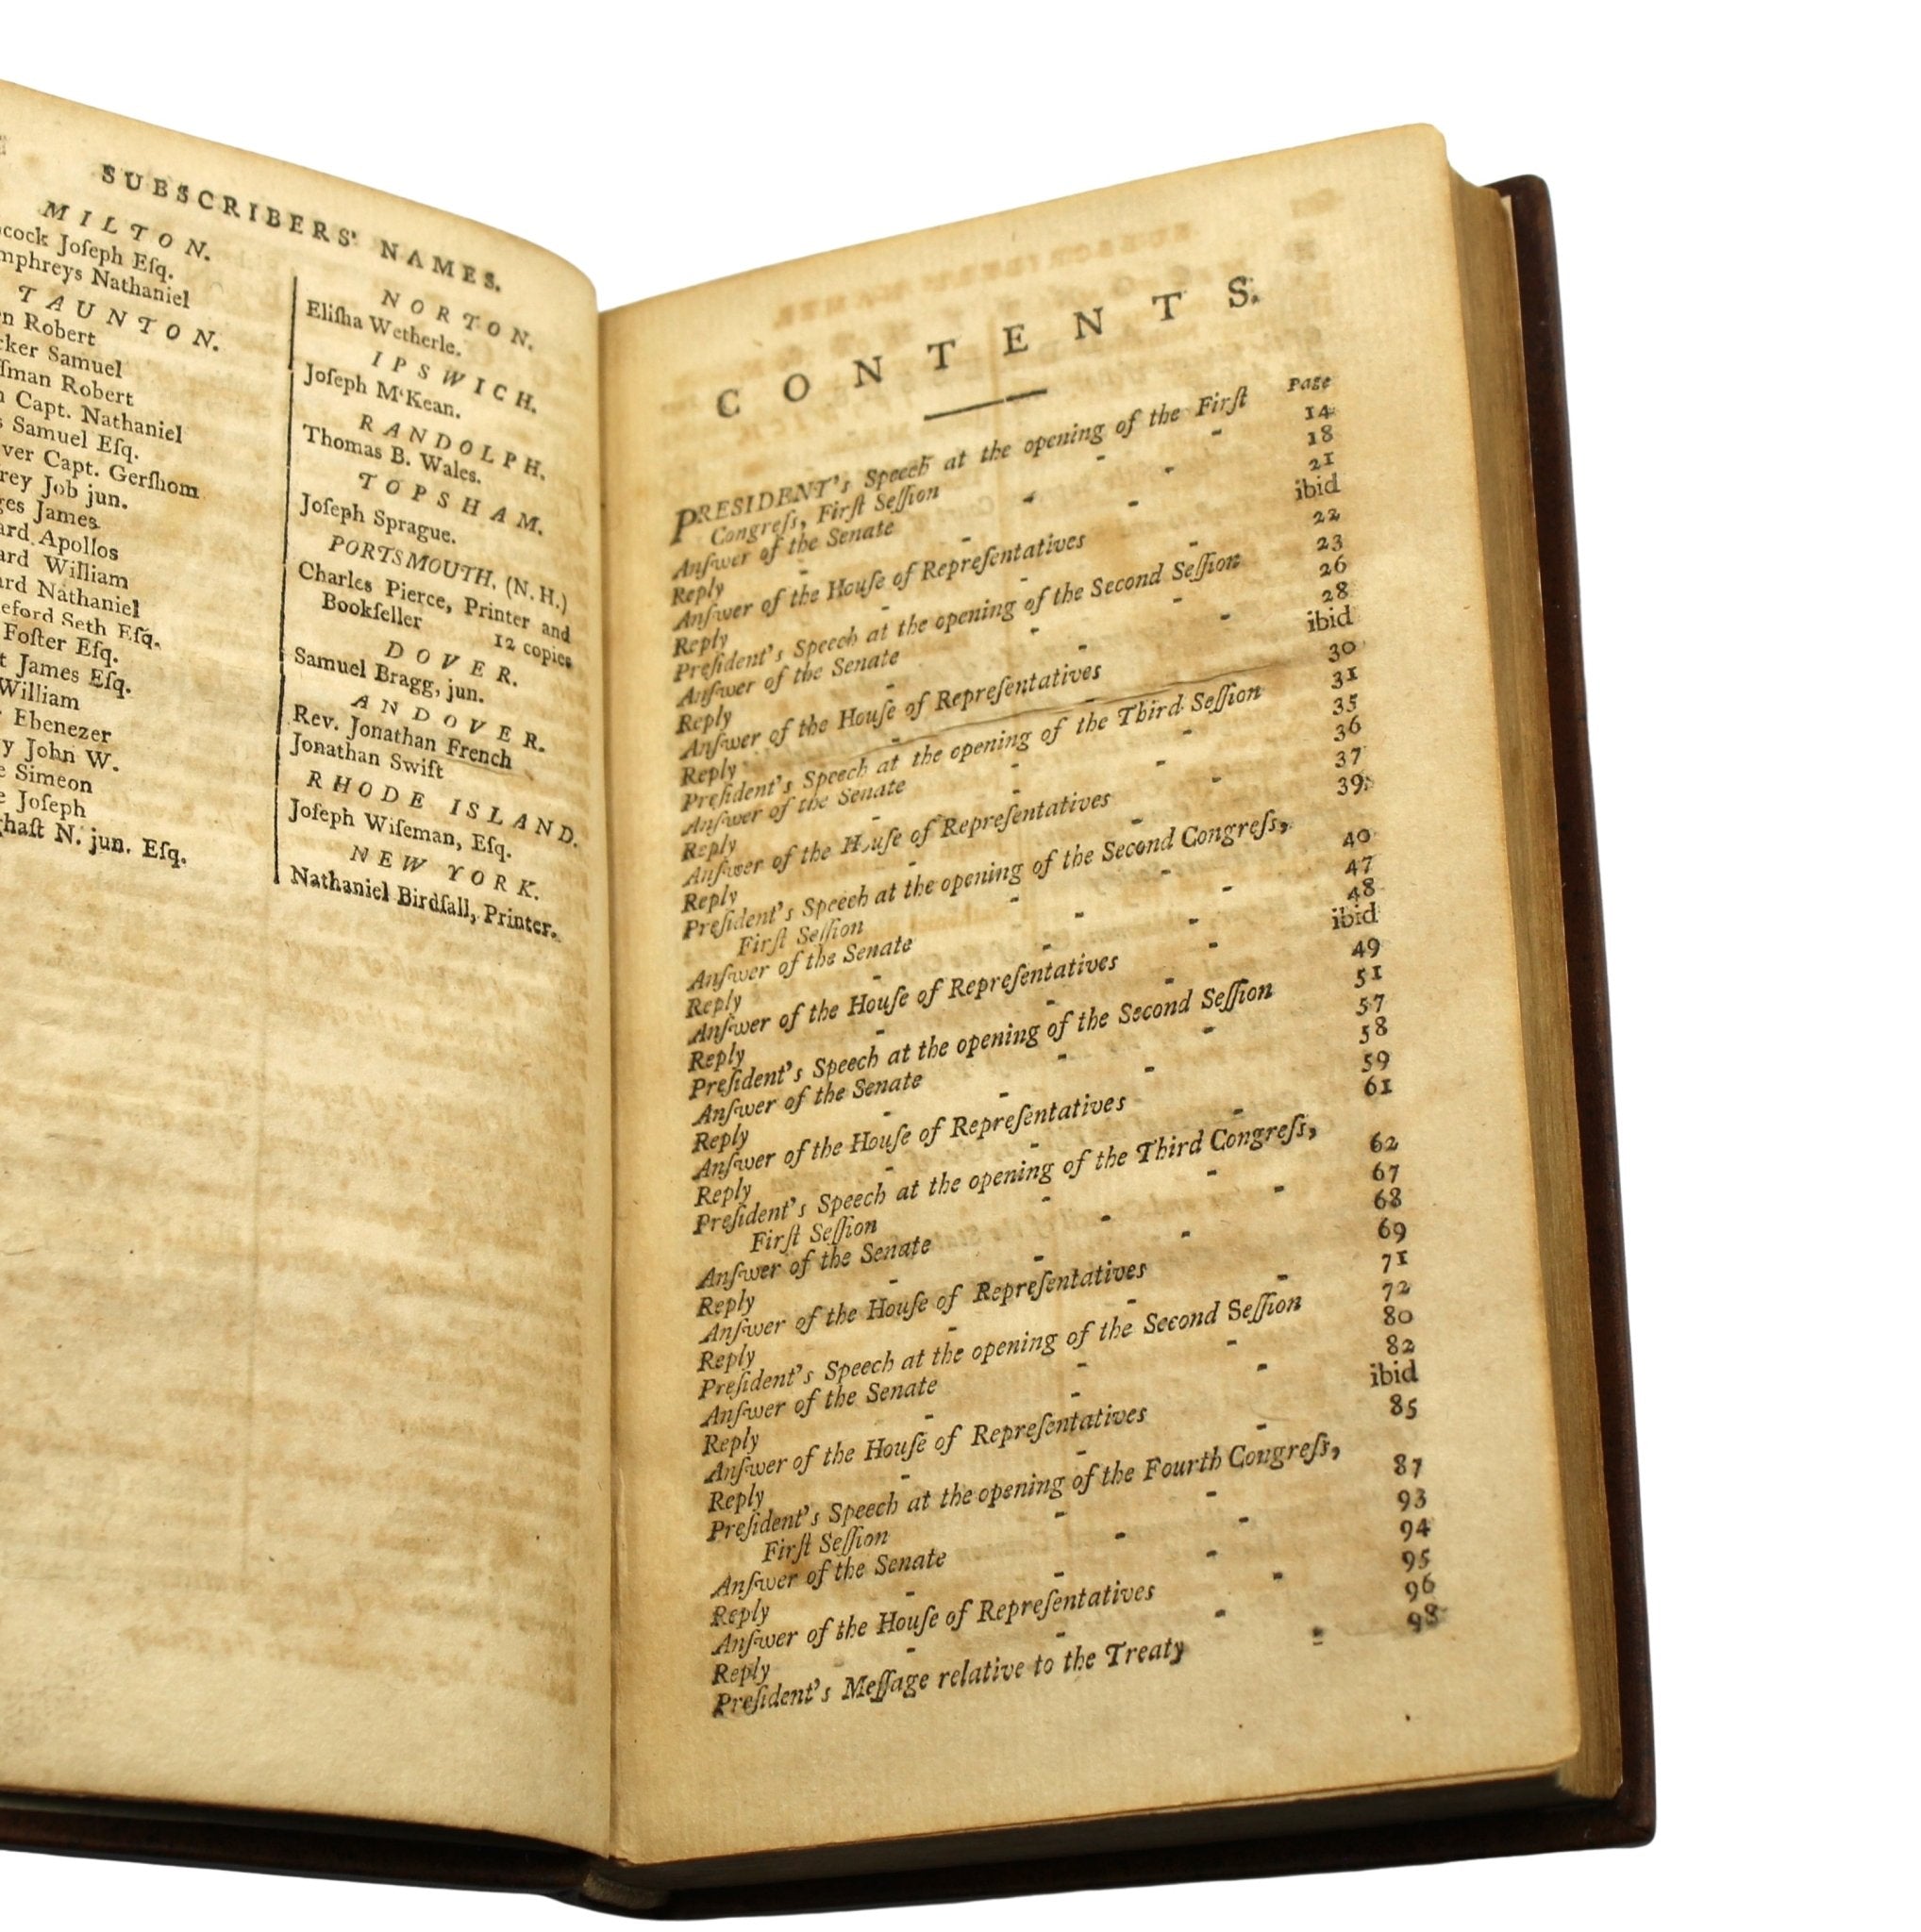 SUBSCRIBERS' NAMES.
MILTON.
Joſeph Eſq.
Nathaniel
TAUNTON.
Robert
Samuel
Robert
Capt. Nathaniel
Samuel Eſq.
Capt. Gerſhom
Job jun.
James
Apollos
William
Nathaniel
Seth Eſq.
Foſter Eſq.
James Eſq.
William
Ebenezer
John W.
Simeon
Joſeph
N. jun. Eſq.
NORTON.
Eliſha Wetherle.
IPSWICH.
Joſeph M'Kean.
RANDOLPH.
Thomas B. Wales.
TOPSHAM.
Joſeph Sprague.
PORTSMOUTH. (N. H.)
Charles Pierce, Printer and
Bookſeller 12 copies
DOVER.
Samuel Bragg, jun.
ANDOVER.
Rev. Jonathan French
Jonathan Swift
RHODE ISLAND.
Joſeph Wiſeman, Eſq.
NEW YORK.
Nathaniel Birdſall, Printer.
CONTENTS.
Page
PRESIDENT's Speech at the opening of the Firſt
Congreſs, Firſt Seſſion - - 14
Answer of the Senate - - 18
Reply - - - 21
Anſwer of the Houſe of Repreſentatives - ibid
Reply - - - 22
Preſident's Speech at the opening of the Second Seſſion 23
Anſwer of the Senate - - - 26
Reply - - - 28
Anſwer of the Houſe of Repreſentatives - ibid
Reply - - - 30
Preſident's Speech at the opening of the Third Seſſion 31
Anſwer of the Senate - - - 35
Reply - - - 36
Anſwer of the Houſe of Repreſentatives - 37
Reply - - - 39
Preſident's Speech at the opening of the Second Congreſs,
Firſt Seſſion - - - 40
Anſwer of the Senate - - - 47
Reply - - - 48
Anſwer of the Houſe of Repreſentatives - ibid
Reply - - - 49
Preſident's Speech at the opening of the Second Seſſion 51
Anſwer of the Senate - - - 57
Reply - - - 58
Anſwer of the Houſe of Repreſentatives - 59
Reply - - - 61
Preſident's Speech at the opening of the Third Congreſs,
Firſt Seſſion - - - 62
Anſwer of the Senate - - - 67
Reply - - - 68
Anſwer of the Houſe of Repreſentatives - 69
Reply - - - 71
Preſident's Speech at the opening of the Second Seſſion 72
Anſwer of the Senate - - - 80
Reply - - - 82
Anſwer of the Houſe of Repreſentatives - ibid
Reply - - - 85
Preſident's Speech at the opening of the Fourth Congreſs,
Firſt Seſſion - - - 87
Anſwer of the Senate - - - 93
Reply - - - 94
Anſwer of the Houſe of Repreſentatives - 95
Reply - - - 96
Preſident's Meſſage relative to the Treaty - 98